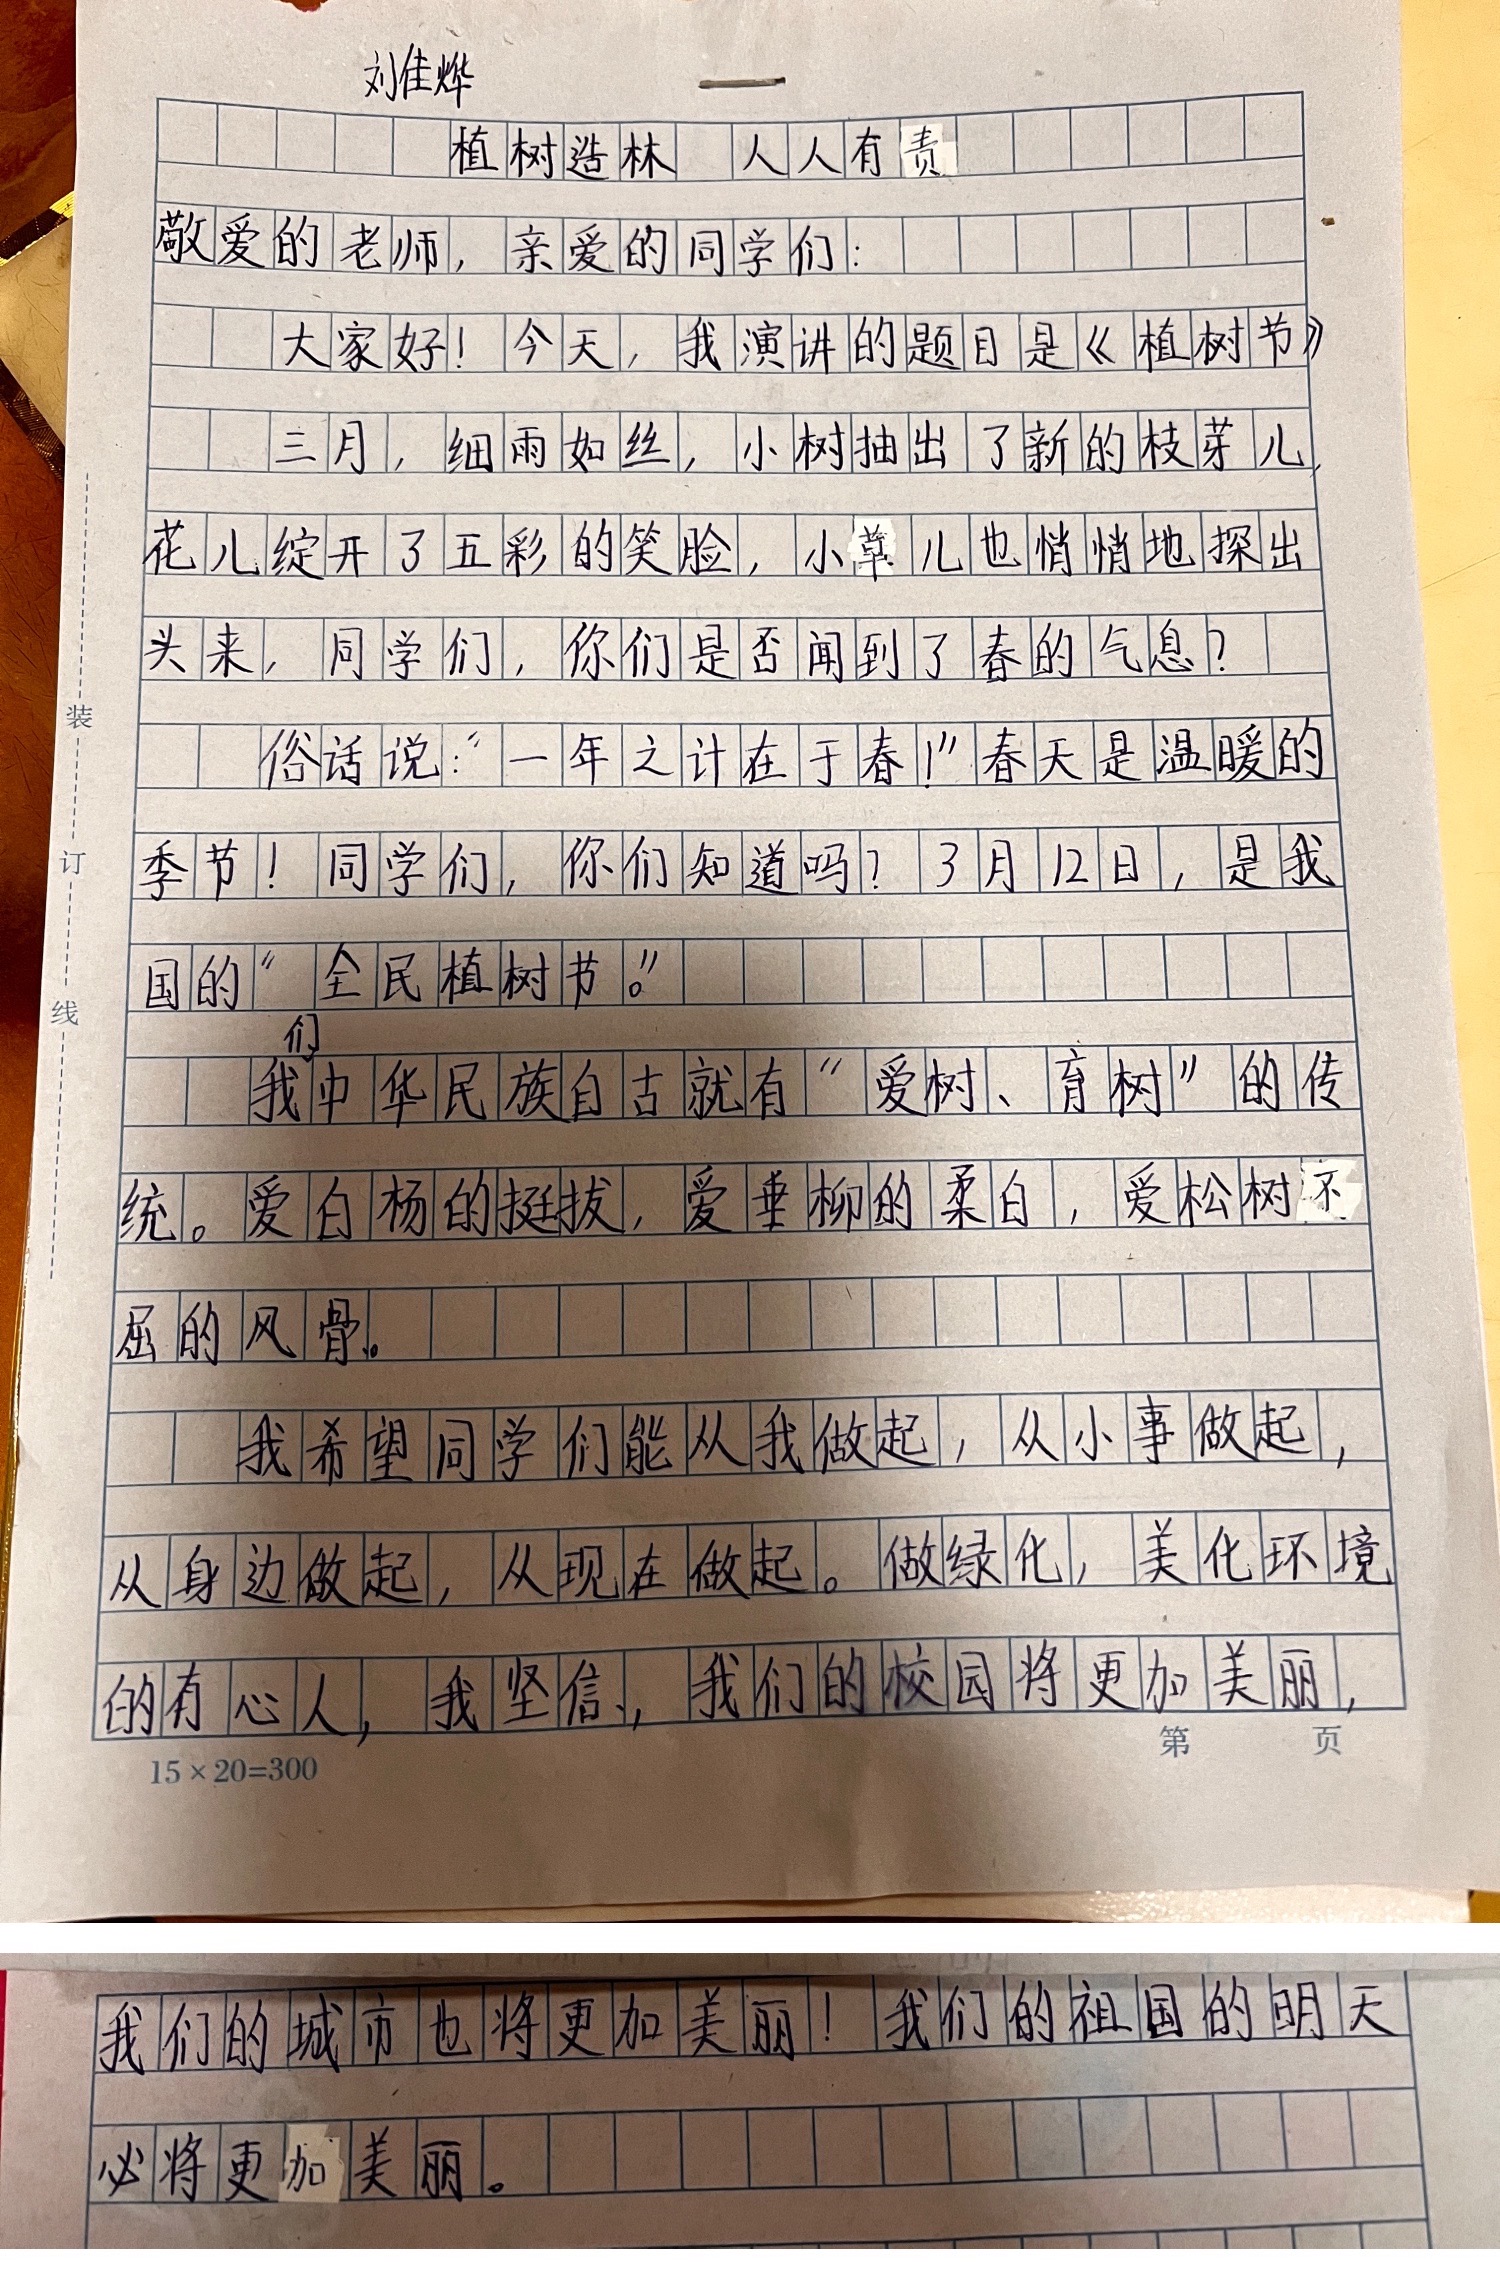 刘佳烨
植树造林 人人有责
敬爱的老师，亲爱的同学们：
大家好！今天，我演讲的题目是《植树节》
三月，细雨如丝，小树抽出了新的枝芽儿，
花儿绽开了五彩的笑脸，小草儿也悄悄地探出
头来，同学们，你们是否闻到了春的气息？
俗话说：“一年之计在于春！”春天是温暖的
季节！同学们，你们知道吗？3月12日，是我
国的“全民植树节。”
我们中华民族自古就有“爱树、育树”的传
统。爱白杨的挺拔，爱垂柳的柔白，爱松树不
屈的风骨。
我希望同学们能从我做起，从小事做起，
从身边做起，从现在做起。做绿化，美化环境
的有心人，我坚信，我们的校园将更加美丽，
15×20=300
第 页
装
订
线
我们的城市也将更加美丽！我们的祖国的明天
必将更加美丽。